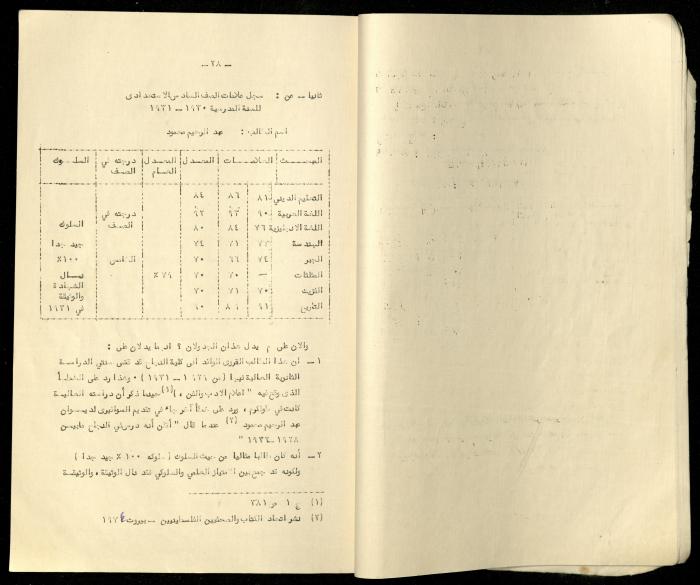 - ٢٨ -
ثانيا - عن : سجل علامات الصف السادس الاستعدادي
للسنة المدرسية ١٩٣٠ - ١٩٣١
اسم الطالب : عبد الرحيم محمود
المبحث العلامات المعدل المعدل العام درجته في الصف السلوك
التعليم الديني ٨١ ٨٦ ٨٤
اللغة العربية ٩٠ ٩٣ ٩٢ درجته في السلوك
اللغة الانجليزية ٧٦ ٨٤ ٨٠ الصف
الهندسة ٧١ ٧٤ جيد جدا
الجبر ٧٤ ٦٦ ٧٠ الخامس ١٠٠٪
المثلثات - ٧٠ ٧٠ ٧٩ ٪ ينال
٧٠ ٧١ ٧٠ الشهادة
والوثيقة
التاريخ ٩١ ٩٠ في ١٩٣١
والان على م يدل هذان الجدولان ؟ انهما يدلان على :
١ - ان هذا الطالب القروي الوافد الى كلية النجاح قد قضى سنتي الدراسة
الثانوية العالية فيها ( من ١٩٢٩ - ١٩٣١ ) . وهذا رد على الخطأ
الذي وقع فيه " اعلام الادب والفن " (١) حينما ذكر أن دراسته العالية
كانت في طولكرم ، ورد على خطأ آخر جاء في تقديم السوافيري لديوان
عبد الرحيم محمود (٢) عندما قال " أظن أنه درس في النجاح ما بين
١٩٢٨-١٩٣٢ "
٢ - أنه كان طالبا مثاليا من حيث السلوك ( سلوكه ١٠٠ ٪ جيد جدا )
ولكونه قد جمع بين الامتياز العلمي والسلوكي فقد نال الوثيقة ، والوثيقة
(١) ج ١ ص ٣٨١
(٢) نشر اتحاد الكتاب والصحفيين الفلسطينيين - بيروت ١٩٧٤